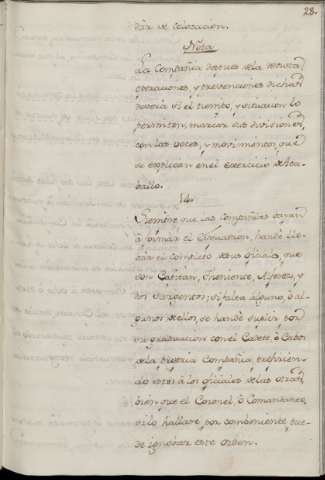 28.
dar de colocacion.
Nota
La Compañia despues de la revista,
operaciones, y prevenciones dichas
deverá si el tiempo, y situacion lo
permiten, marcar sus divisiones,
con las voces, y movimientos, que
se explican en el exercicio de á ca-
ballo.
14.
Siempre que las compañias vayan
á formar el Esquadron, han de lle-
var el completo de sus oficiales, que
son Capitan, Theniente, Alferez, y
dos Sargentos; si falta alguno, ó al-
gunos de ellos, se han de suplir por
su graduacion con el Cadete, ó Cabos
de la misma Compañia, prefirien-
do estos á los oficiales de las otras,
bien que el Coronel, ó Comandante,
si lo hallare por combeniente, pue-
de ignorar este orden.